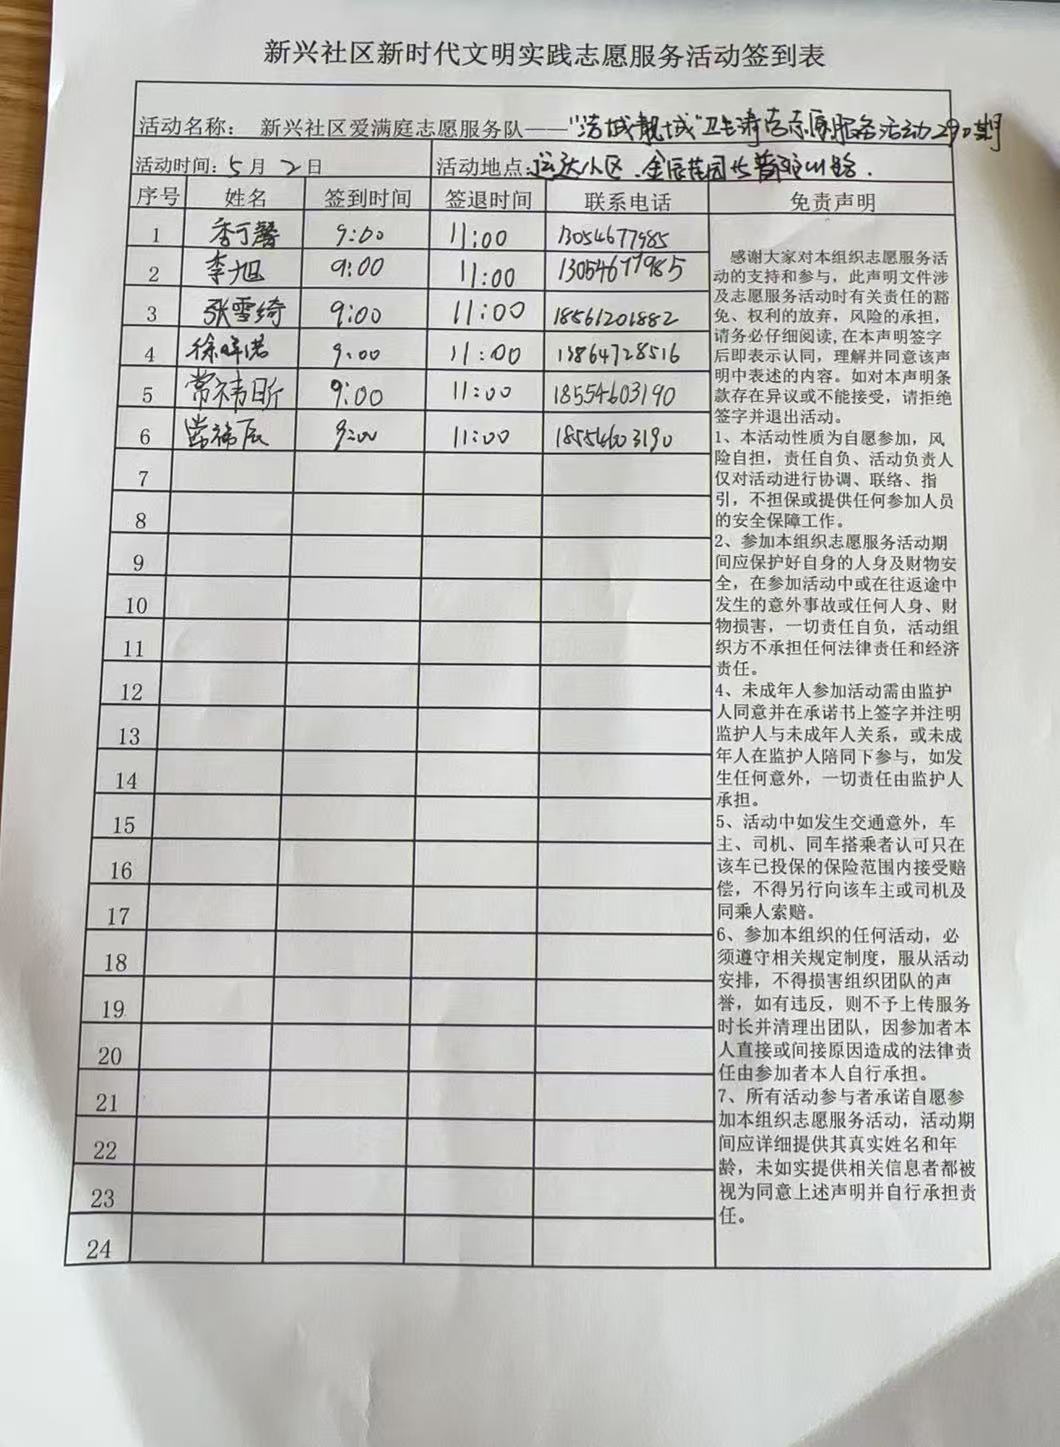 新兴社区新时代文明实践志愿服务活动签到表
活动名称： 新兴社区爱满庭志愿服务队——“洁城靓城”卫生清洁志愿服务活动290期
活动时间:5月2日 活动地点:运达小区、金辰花园
序号 姓名 签到时间 签退时间 联系电话 免责声明
1 李可馨 9:00 11:00 13054677985
2 李旭 9:00 11:00 13054677985
3 张雪绮 9:00 11:00 18561201882
4 徐 诺 9:00 11:00 13864728516
5 常祎昕 9:00 11:00 18554603190
6 常祎辰 9:00 11:00 18554603190
7
8
9
10
11
12
13
14
15
16
17
18
19
20
21
22
23
24
感谢大家对本组织志愿服务活
动的支持和参与，此声明文件涉
及志愿服务活动时有关责任的豁
免、权利的放弃，风险的承担，
请务必仔细阅读,在本声明签字
后即表示认同，理解并同意该声
明中表述的内容。如对本声明条
款存在异议或不能接受，请拒绝
签字并退出活动。
1、本活动性质为自愿参加，风
险自担，责任自负、活动负责人
仅对活动进行协调、联络、指
引，不担保或提供任何参加人员
的安全保障工作。
2、参加本组织志愿服务活动期
间应保护好自身的人身及财物安
全，在参加活动中或在往返途中
发生的意外事故或任何人身、财
物损害，一切责任自负，活动组
织方不承担任何法律责任和经济
责任。
4、未成年人参加活动需由监护
人同意并在承诺书上签字并注明
监护人与未成年人关系，或未成
年人在监护人陪同下参与，如发
生任何意外，一切责任由监护人
承担。
5、活动中如发生交通意外，车
主、司机、同车搭乘者认可只在
该车已投保的保险范围内接受赔
偿，不得另行向该车主或司机及
同乘人索赔。
6、参加本组织的任何活动，必
须遵守相关规定制度，服从活动
安排，不得损害组织团队的声
誉，如有违反，则不予上传服务
时长并清理出团队，因参加者本
人直接或间接原因造成的法律责
任由参加者本人自行承担。
7、所有活动参与者承诺自愿参
加本组织志愿服务活动，活动期
间应详细提供其真实姓名和年
龄，未如实提供相关信息者都被
视为同意上述声明并自行承担责
任。